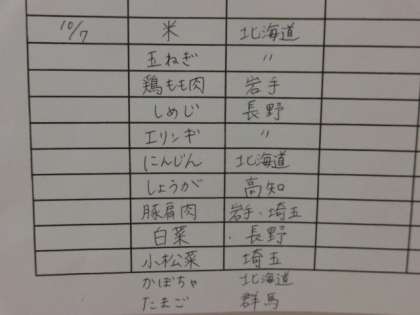 10/7 米 北海道
玉ねぎ 〃
鶏もも肉 岩手
しめじ 長野
エリンギ 〃
にんじん 北海道
しょうが 高知
豚肩肉 岩手・埼玉
白菜 長野
小松菜 埼玉
かぼちゃ 北海道
たまご 群馬